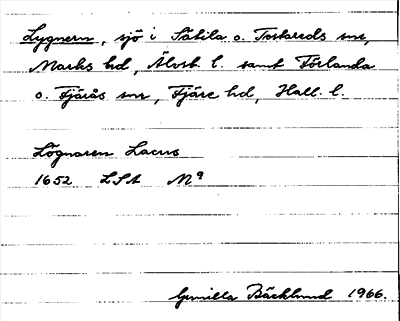 Lygnern, sjö i Sätila o. Tostareds snr,
Marks hd, Älvsb l. samt Förlanda
o. Fjärås snr, Fjäre hd, Hall. l.
Lögnaren Lacus
1652 LSA Mq
Gunilla Bäcklund 1966.